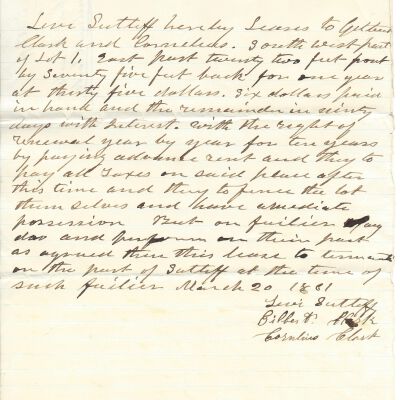 Levi Sutliff hereby Leases to Gilbert
Clark and Cornelius. South west part
of Lot 1. East part twenty two feet front
by Seventy five feet back for one year
at thirty five dollars. Six dollars paid
in hand and the remainder in ninty
days with Interest. with the right of
renewal year by year for ten years
by paying advance rent and they to
pay all Taxes on said place after
this time and they to fence the lot
them selves and have amediate
possession But on failier pay
das and perform on their part
as agreed then this lease to terminate
on the part of Sutliff at the time of
such failier March 20 1881
Levi Sutliff
Gilbert Clark
Cornelius Clark